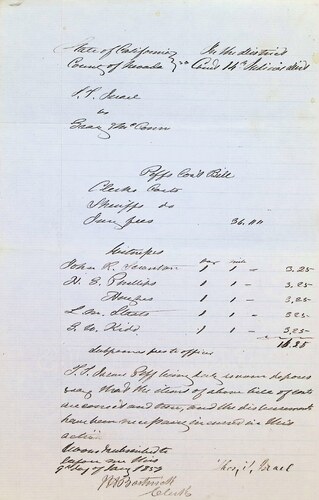 State of California } In the district
County of Nevada } ss Court 14th Judicial Dist
S. T. Israel
vs
Geary & McCann
Plffs Cost Bill
Clerks Costs
Sheriffs do
Jury fees 36.00
Witnesses
John R. 1 1 - 3.25
H. S. Phillips 1 1 - 3.25
Hughes 1 1 - 3.25
L. M. 1 1 - 3.25
G. W. Kidd 1 1 - 3.25
Subpoenas fees to officer
S. T. Israel Plff being duly sworn deposes
& says that the items of above bill of costs
are correct and true, and the disbursements
have been necessarily incurred in this
action
Sworn & subscribed to
before me this
9th day of 1857
Israel
Clerk